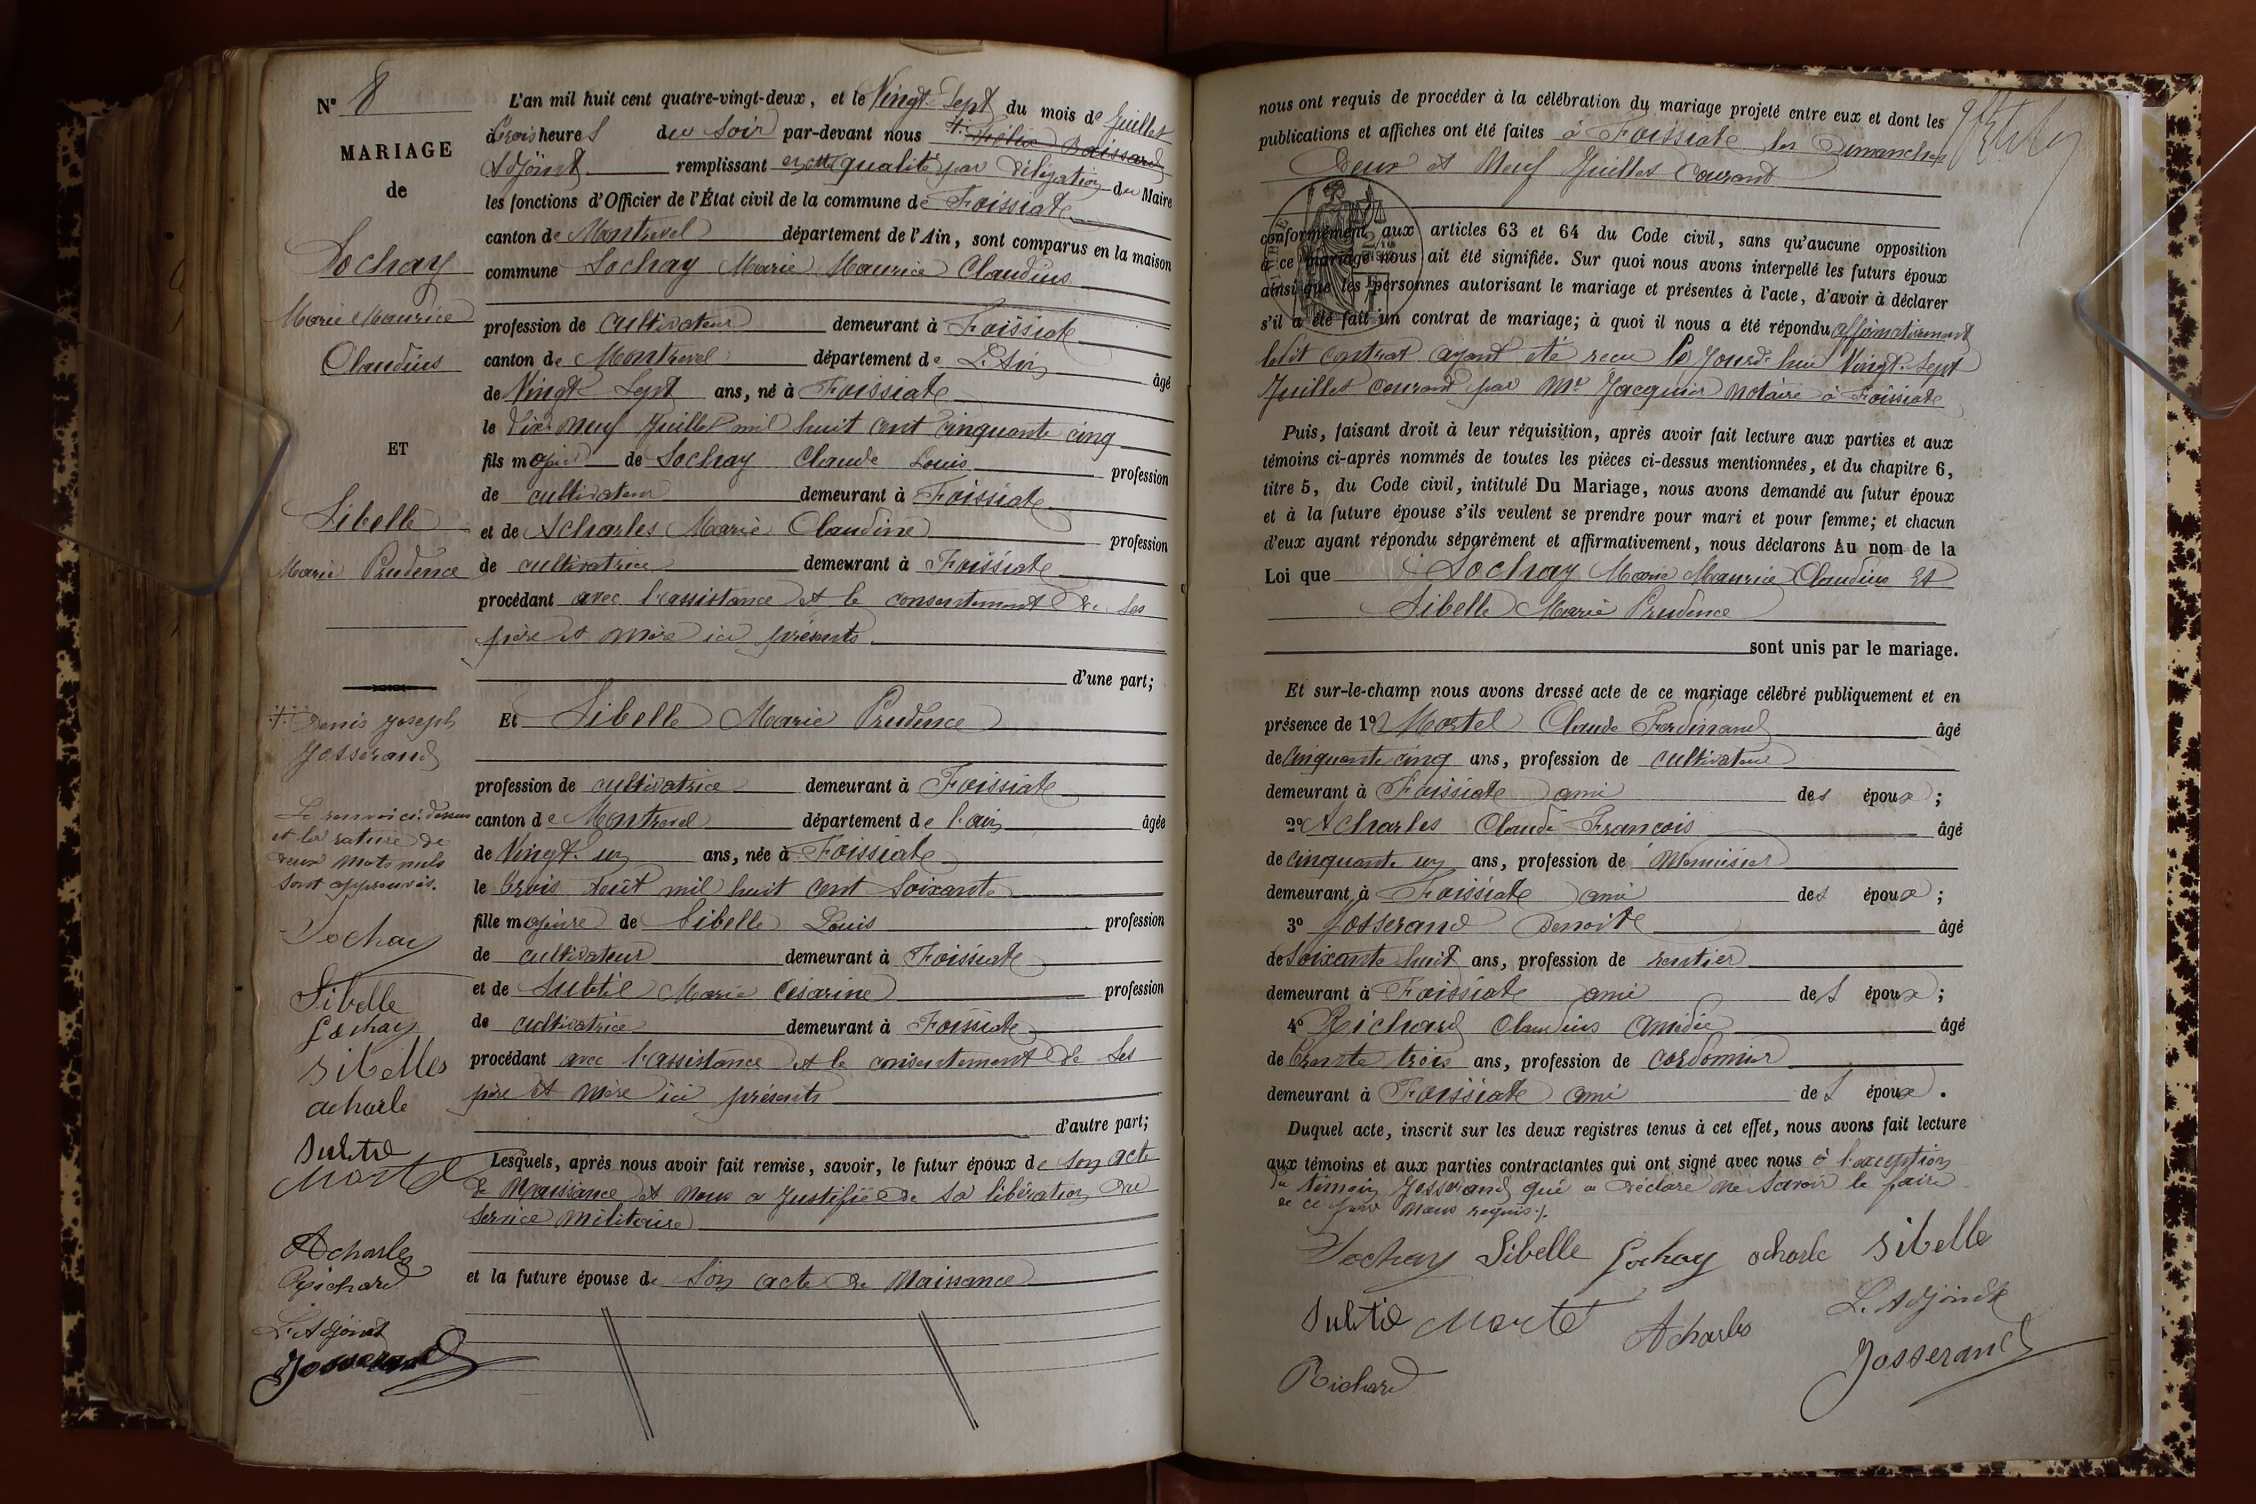 N° 8
MARIAGE
de
Sochay
Marie Maurice
Claudius
ET
Sibelle
Marie Prudence
+ Denis Joseph
Josserand
Le renvoi ci-dessus
et la rature de
deux mots nuls
sont approuvés.
Sochay
Sibelle
Sochay
Sibelles
acharle
Subtil
Mortel
Acharles
Richard
L'Adjoint
Josserand
L'an mil huit cent quatre-vingt-deux, et le Vingt Sept du mois de Juillet
à trois heures du Soir par-devant nous +
Adjoint remplissant en cette qualité par délégation du Maire
les fonctions d'Officier de l'État civil de la commune de Foissiate
canton de Montrevel département de l'Ain, sont comparus en la maison
commune Sochay Marie Maurice Claudius
profession de cultivateur demeurant à Foissiate
canton de Montrevel département de L'Ain âgé
de Vingt Sept ans, né à Foissiate
le dix-neuf Juillet mil huit cent cinquante cinq
fils majeur de Sochay Claude Louis profession
de cultivateur demeurant à Foissiate
et de Acharles Marie Claudine profession
de cultivatrice demeurant à Foissiate
procédant avec l'assistance et le consentement de Ses
père et mère ici présents
d'une part;
Et Sibelle Marie Prudence
profession de cultivatrice demeurant à Foissiate
canton de Montrevel département de l'ain âgée
de Vingt-un ans, née à Foissiate
le trois Août mil huit cent Soixante
fille majeure de Sibelle Louis profession
de cultivateur demeurant à Foissiate
et de Subtil Marie Césarine profession
de cultivatrice demeurant à Foissiate
procédant avec l'assistance et le consentement de Ses
père et mère ici présents
d'autre part;
Lesquels, après nous avoir fait remise, savoir, le futur époux de Son acte
de Naissance et nous a Justifié de Sa libération du
Service Militaire
et la future épouse de Son acte de Naissance
nous ont requis de procéder à la célébration du mariage projeté entre eux et dont les
publications et affiches ont été faites à Foissiate les Dimanches
Deux et Neuf Juillet Courant
conformément aux articles 63 et 64 du Code civil, sans qu'aucune opposition
à ce mariage nous ait été signifiée. Sur quoi nous avons interpellé les futurs époux
ainsi que les personnes autorisant le mariage et présentes à l'acte, d'avoir à déclarer
s'il a été fait un contrat de mariage; à quoi il nous a été répondu affirmativement
ledit contrat ayant été reçu le Jourd'hui Vingt-Sept
Juillet courant par Me Jacquier Notaire à Foissiate
Puis, faisant droit à leur réquisition, après avoir fait lecture aux parties et aux
témoins ci-après nommés de toutes les pièces ci-dessus mentionnées, et du chapitre 6,
titre 5, du Code civil, intitulé Du Mariage, nous avons demandé au futur époux
et à la future épouse s'ils veulent se prendre pour mari et pour femme; et chacun
d'eux ayant répondu séparément et affirmativement, nous déclarons Au nom de la
Loi que Sochay Marie Maurice Claudius Et
Sibelle Marie Prudence
sont unis par le mariage.
Et sur-le-champ nous avons dressé acte de ce mariage célébré publiquement et en
présence de 1° Mortel Claude Ferdinand âgé
de Cinquante cinq ans, profession de cultivateur
demeurant à Foissiate ami des époux;
2° Acharles Claude François âgé
de cinquante un ans, profession de Menuisier
demeurant à Foissiate ami des époux;
3° Josserand Benoît âgé
de Soixante huit ans, profession de rentier
demeurant à Foissiate ami des époux;
4° Richard Claudius Amédée âgé
de trente trois ans, profession de cordonnier
demeurant à Foissiate ami des époux.
Duquel acte, inscrit sur les deux registres tenus à cet effet, nous avons fait lecture
aux témoins et aux parties contractantes qui ont signé avec nous à l'exception
du témoin Josserand qui a déclaré ne Savoir le faire
de ce par nous requis./.
Sochay Sibelle Sochay acharle Sibelle
Subtil Mortel Acharles L'Adjoint
Richard Josserand